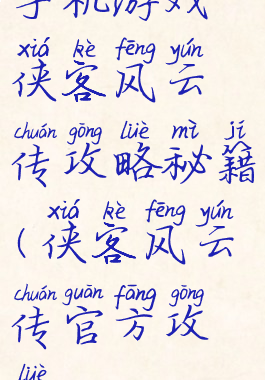 手机游戏
xiá kè fēng yún
侠客风云
chuán gōng lüè mì jí
传攻略秘籍
xiá kè fēng yún
(侠客风云
chuán guān fāng gōng
传官方攻
lüè